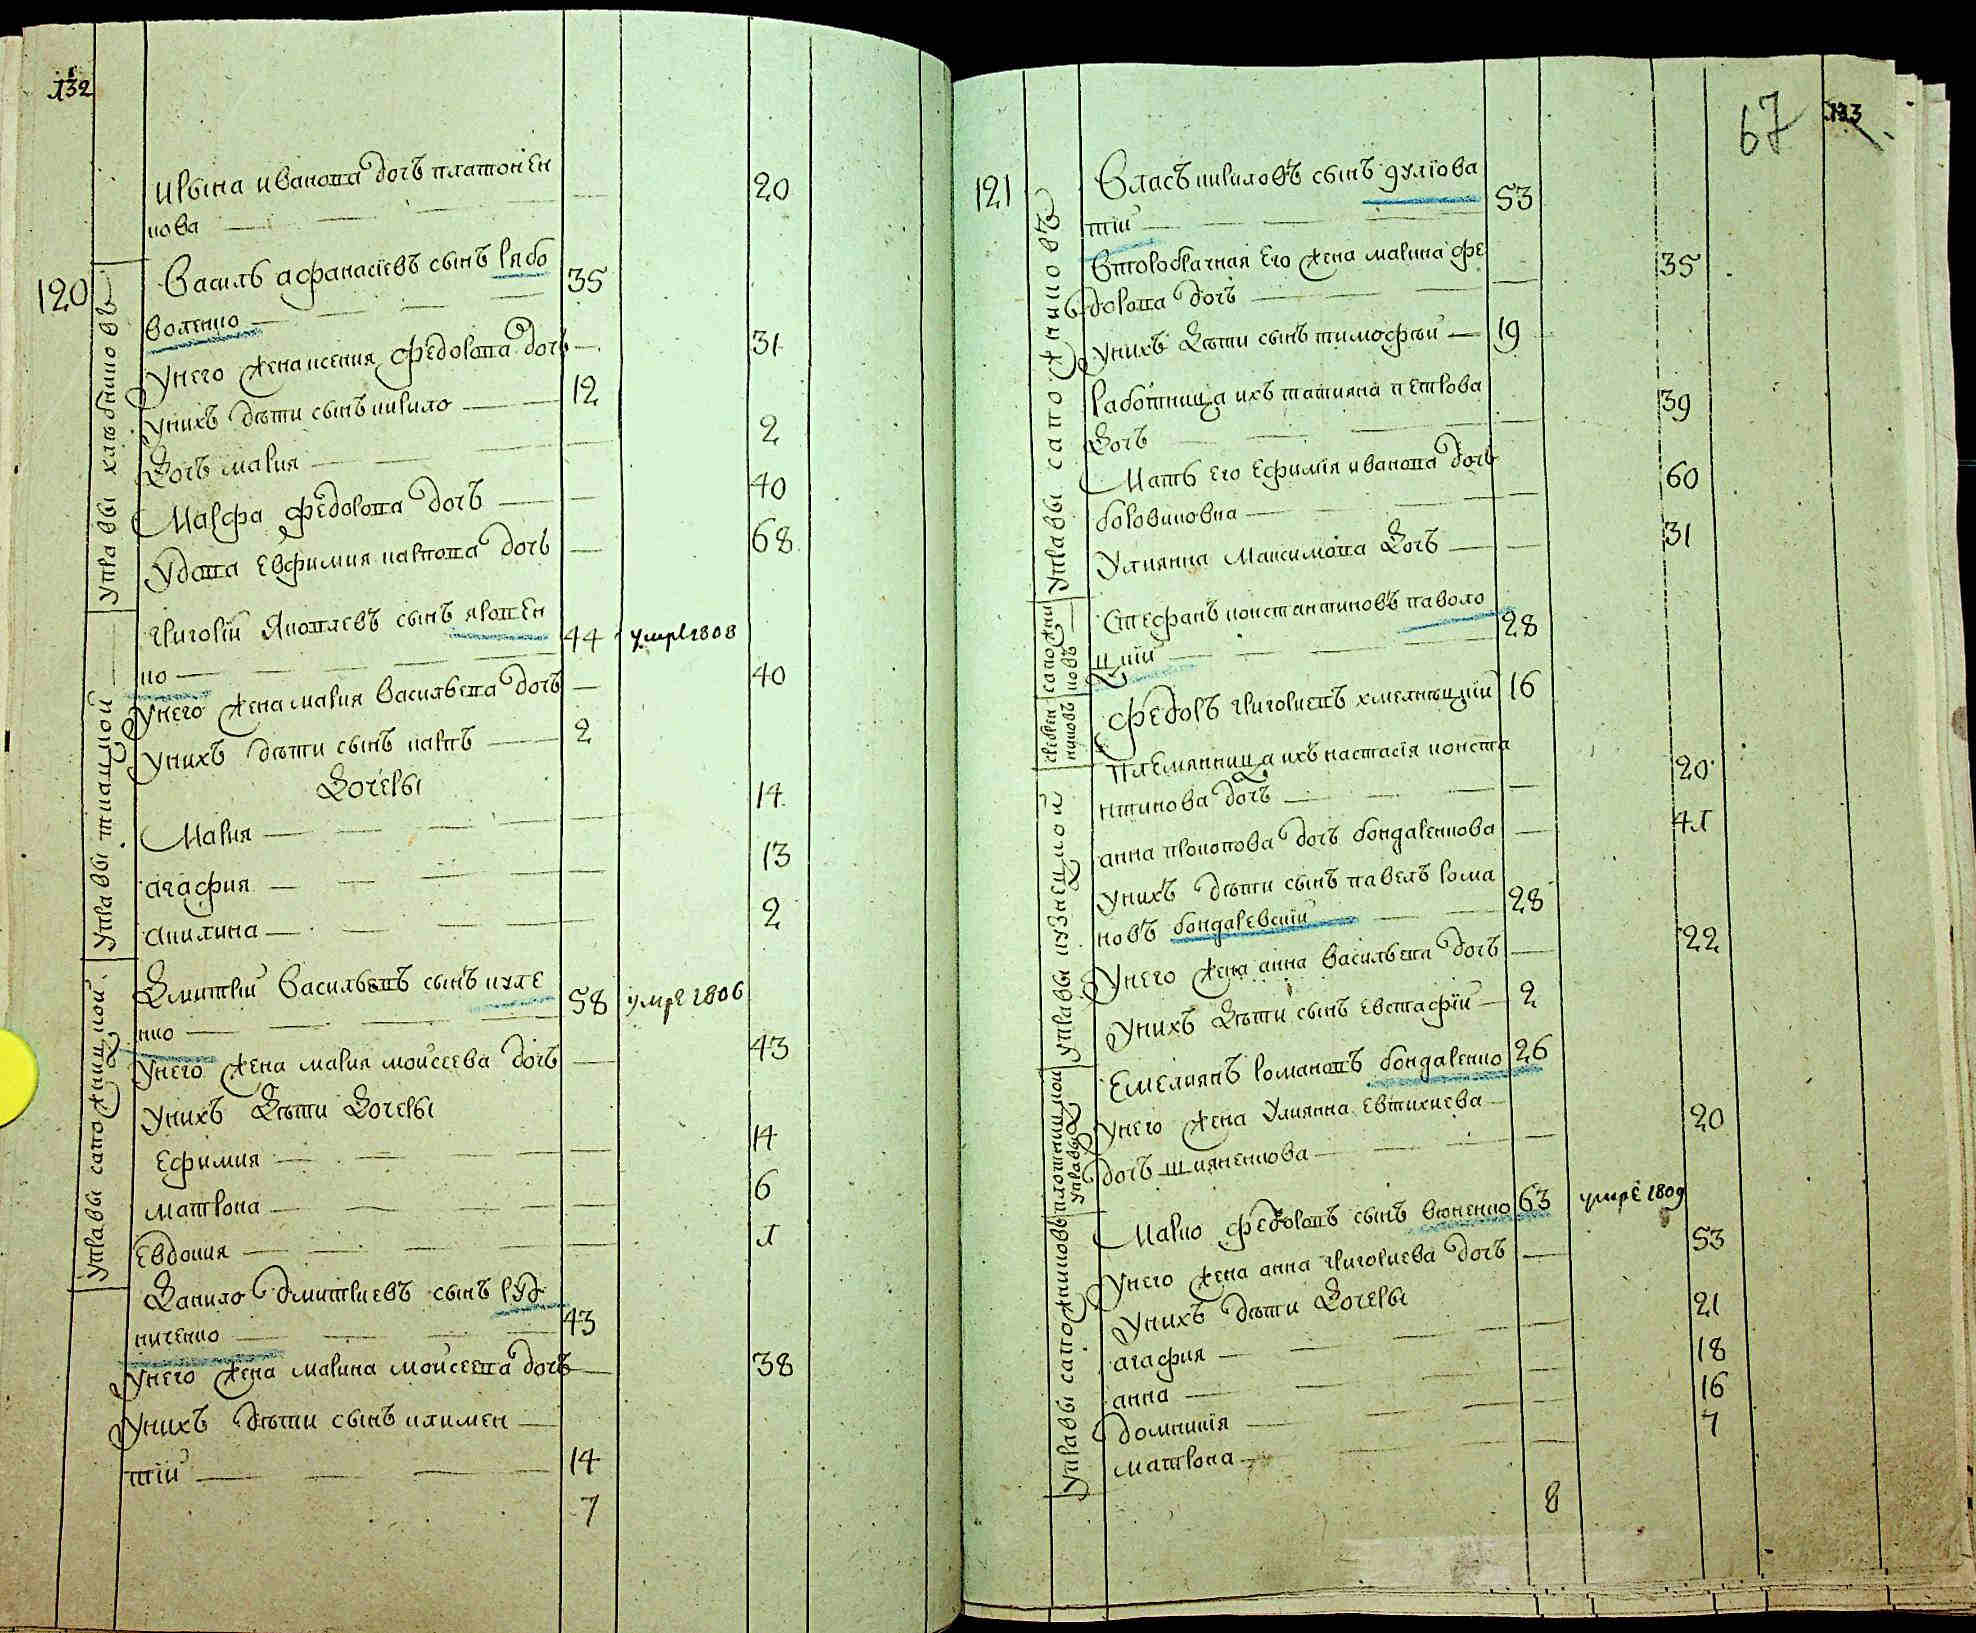 132
Ирына иванова дочъ платонен
кова — 20
120
Управы хлѣбниковъ
Василь афанасіевъ сынъ рябо
воленко — 35
Унего жена ксения федорова дочь — 31
Унихъ дѣти сынъ кирило — 12
Дочъ мария — 2
Марфа федорова дочъ — 40
Удова евфимия карпова дочь — 68
Управы ткацкой
григорій Яковлевъ сынъ яровен
ко — 44 умре 1808
Унего жена мария васильева дочь — 40
Унихъ дѣти сынъ карпъ — 2
Дочеры
Мария — 14
агафия — 13
акилина — 2
Управы сапожницкой
Дмитрій васильевъ сынъ куле
нко — 58 умре 1806
Унего жена мария моисеева дочь — 43
Унихъ Дѣти Дочеры
Ефимия — 14
матрона — 6
Евдокия — 1
Данило дмитриевъ сынъ руд
ниченко — 43
Унего жена марина моисеева дочь — 38
Унихъ дѣти сынъ климен
тій — 14
7
67
133
121
Управы сапожниковъ
Власъ кириловъ сынъ
тій — 53
Второбрачная его жена марина фе
дорова дочь — 35
Унихъ Дѣти сынъ тимофѣй — 19
Работница ихъ татияна петрова
Дочъ — 39
Мать его Ефимія иванова дочь
боровиковна — 60
Улиянна максимова Дочъ — 31
сапожни
ковъ
Стефанъ константиновъ паволо
цкій — 28
никовъ
федоръ григориевъ хмелницкій 16
племянница ихъ настасія конста
нтинова дочъ — 20
Управы кузнецкой
анна прокопова дочъ бондаренкова — 41
Унихъ дѣти сынъ павелъ рома
новъ бондаревскій — 28
Унего жена анна васильева дочь — 22
Унихъ Дѣти сынъ евстафій — 2
плотницкой
управы
Емелиянъ романовъ бондаренко 26
Унего жена Улиянна евтихиева
дочъ шияненкова — 20
Управы сапожниковъ
Марко федоровъ сынъ вюненко 63 умре 1809
Унего жена анна григориева дочъ — 53
Унихъ дѣти Дочеры
агафия — 21
анна — 18
домникія — 16
матрона — 7
8